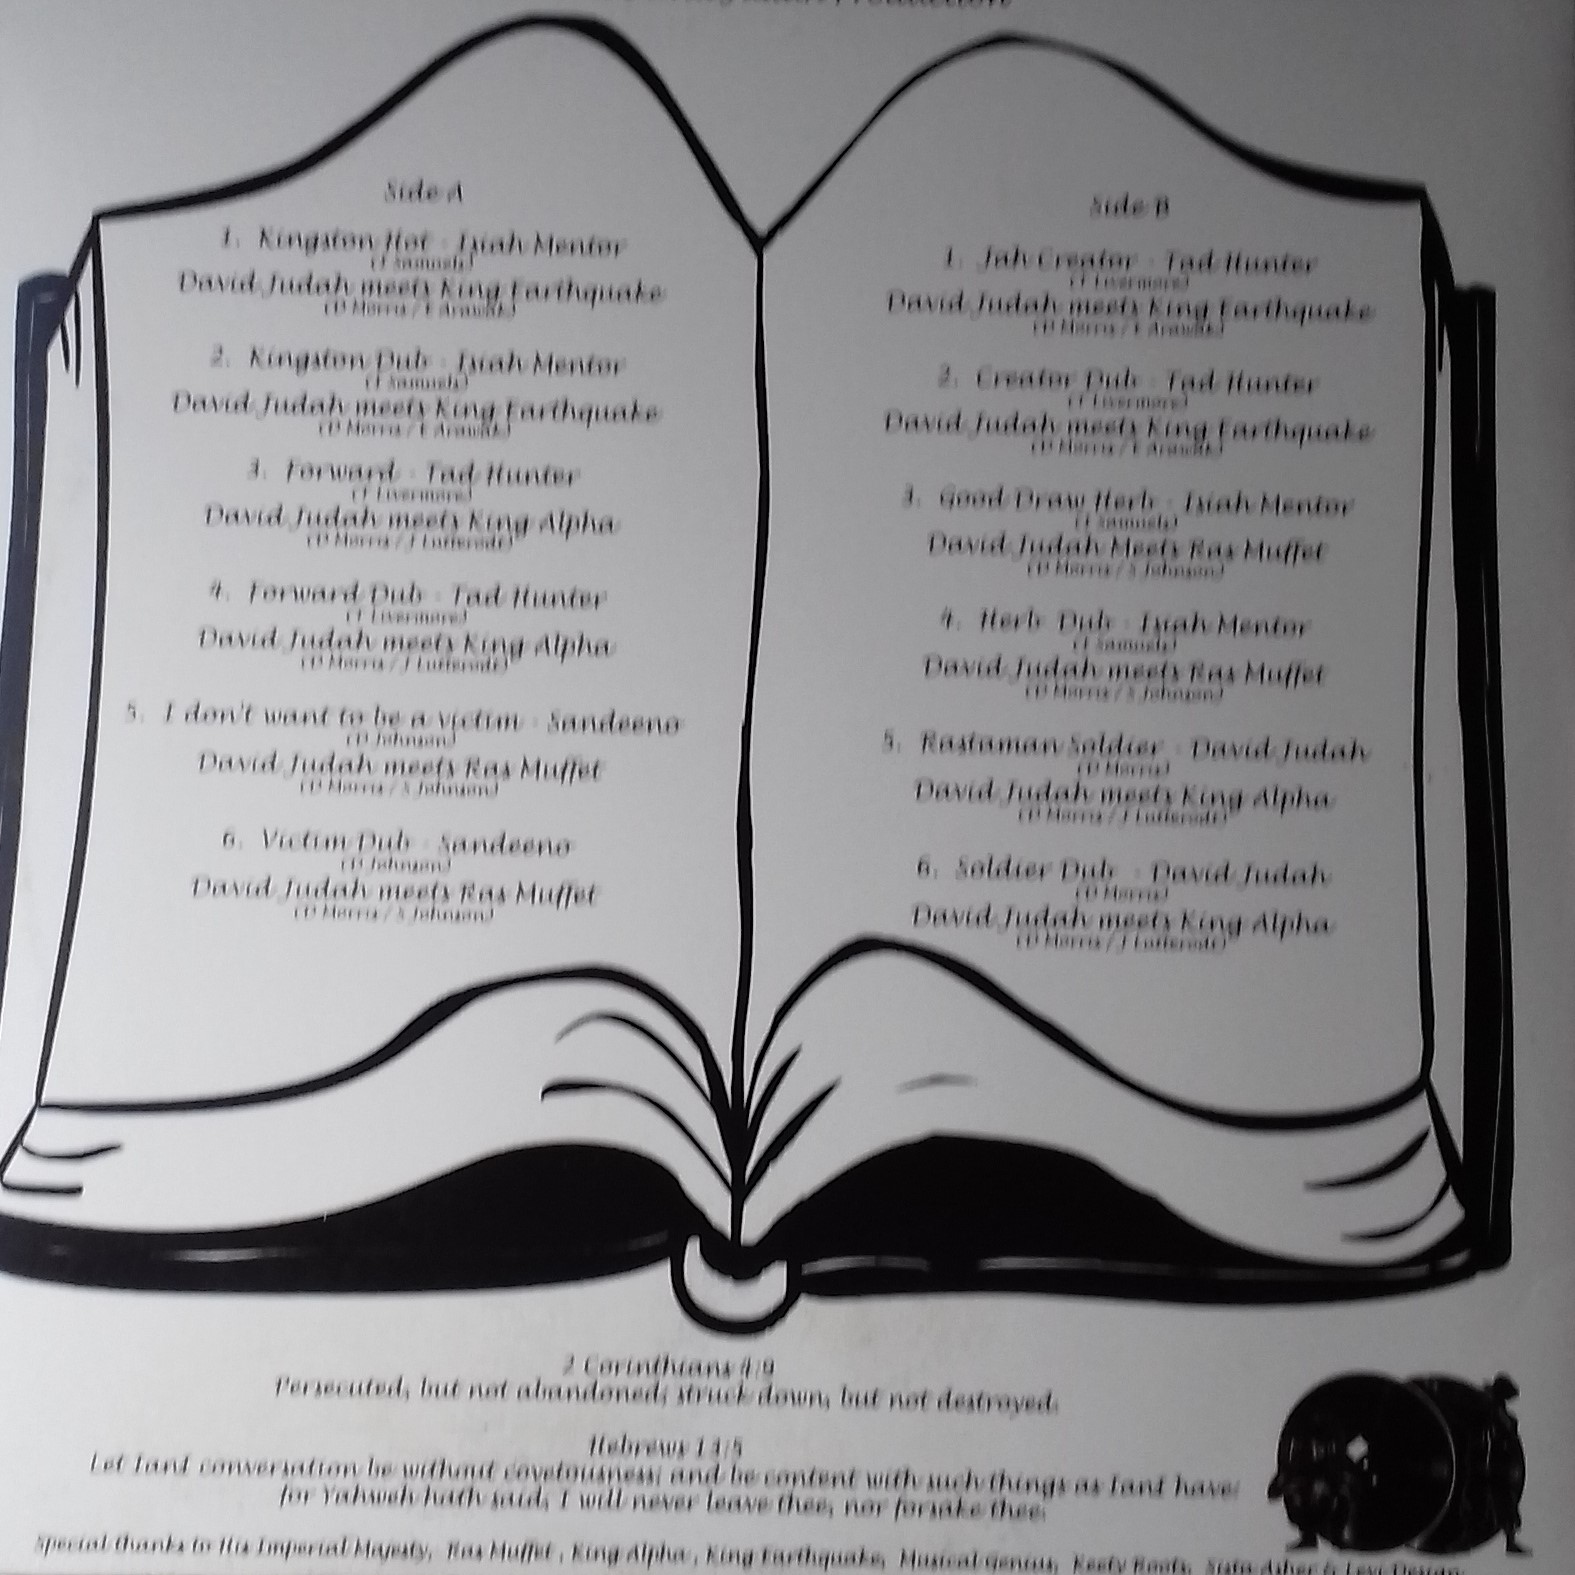 Production
Side A
1. Kingston Hot - Isiah Mentor
(I Samuels)
David Judah meets King Earthquake
(D Morris / E Arawak)
2. Kingston Dub - Isiah Mentor
(I Samuels)
David Judah meets King Earthquake
(D Morris / E Arawak)
3. Forward - Tad Hunter
(T Livermore)
David Judah meets King Alpha
(D Morris / J Lutterodt)
4. Forward Dub - Tad Hunter
(T Livermore)
David Judah meets King Alpha
(D Morris / J Lutterodt)
5. I don't want to be a victim - Sandeeno
(D Johnson)
David Judah meets Ras Muffet
(D Morris / S Johnson)
6. Victim Dub - Sandeeno
(D Johnson)
David Judah meets Ras Muffet
(D Morris / S Johnson)
Side B
1. Jah Creator - Tad Hunter
(T Livermore)
David Judah meets King Earthquake
(D Morris / E Arawak)
2. Creator Dub - Tad Hunter
(T Livermore)
David Judah meets King Earthquake
(D Morris / E Arawak)
3. Good Draw Herb - Isiah Mentor
(I Samuels)
David Judah Meets Ras Muffet
(D Morris / S Johnson)
4. Herb Dub - Isiah Mentor
(I Samuels)
David Judah meets Ras Muffet
(D Morris / S Johnson)
5. Rastaman Soldier - David Judah
(D Morris)
David Judah meets King Alpha
(D Morris / J Lutterodt)
6. Soldier Dub - David Judah
(D Morris)
David Judah meets King Alpha
(D Morris / J Lutterodt)
2 Corinthians 4:9
Persecuted, but not abandoned; struck down, but not destroyed.
Hebrews 13:5
Let IanI conversation be without covetousness; and be content with such things as IanI have:
for Yahweh hath said, I will never leave thee, nor forsake thee.
Special thanks to His Imperial Majesty, Ras Muffet, King Alpha, King Earthquake, Musical Genius, Keety Roots, Sista Asher & Levi Design.